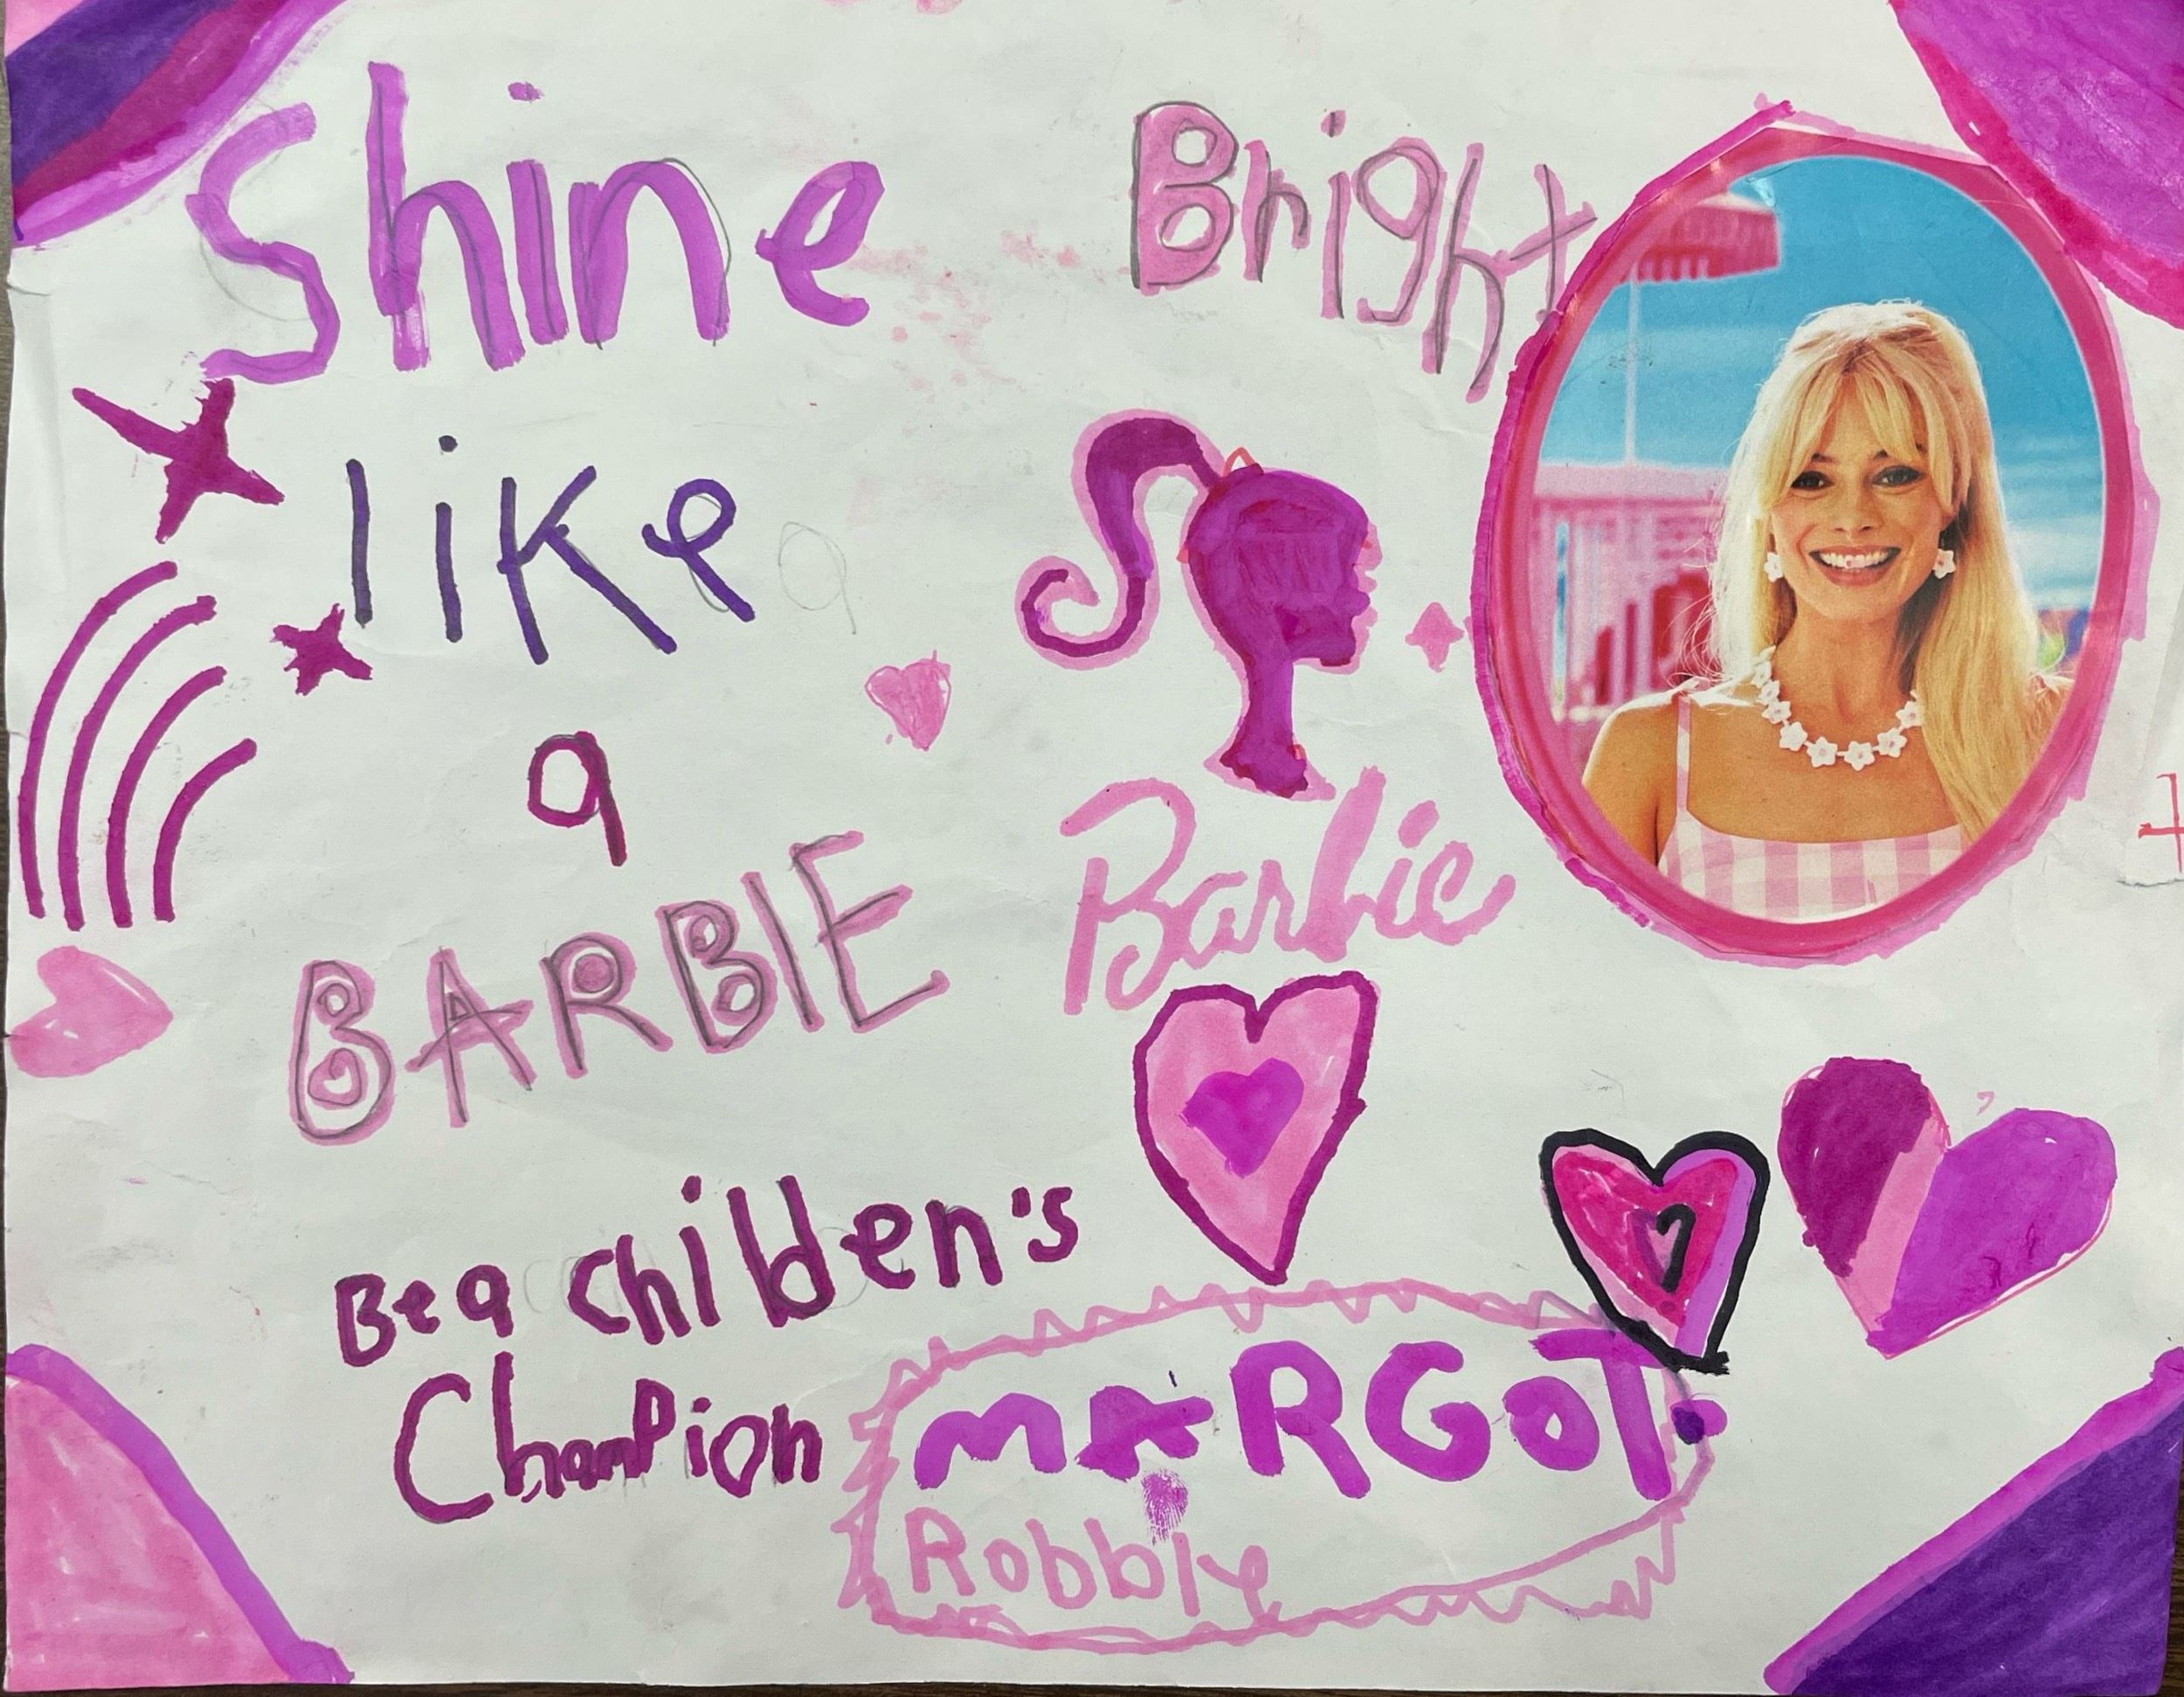 Shine Bright
like
a
BARBIE
Barbie
Be a Childen's
Champion
MARGOT
Robbie